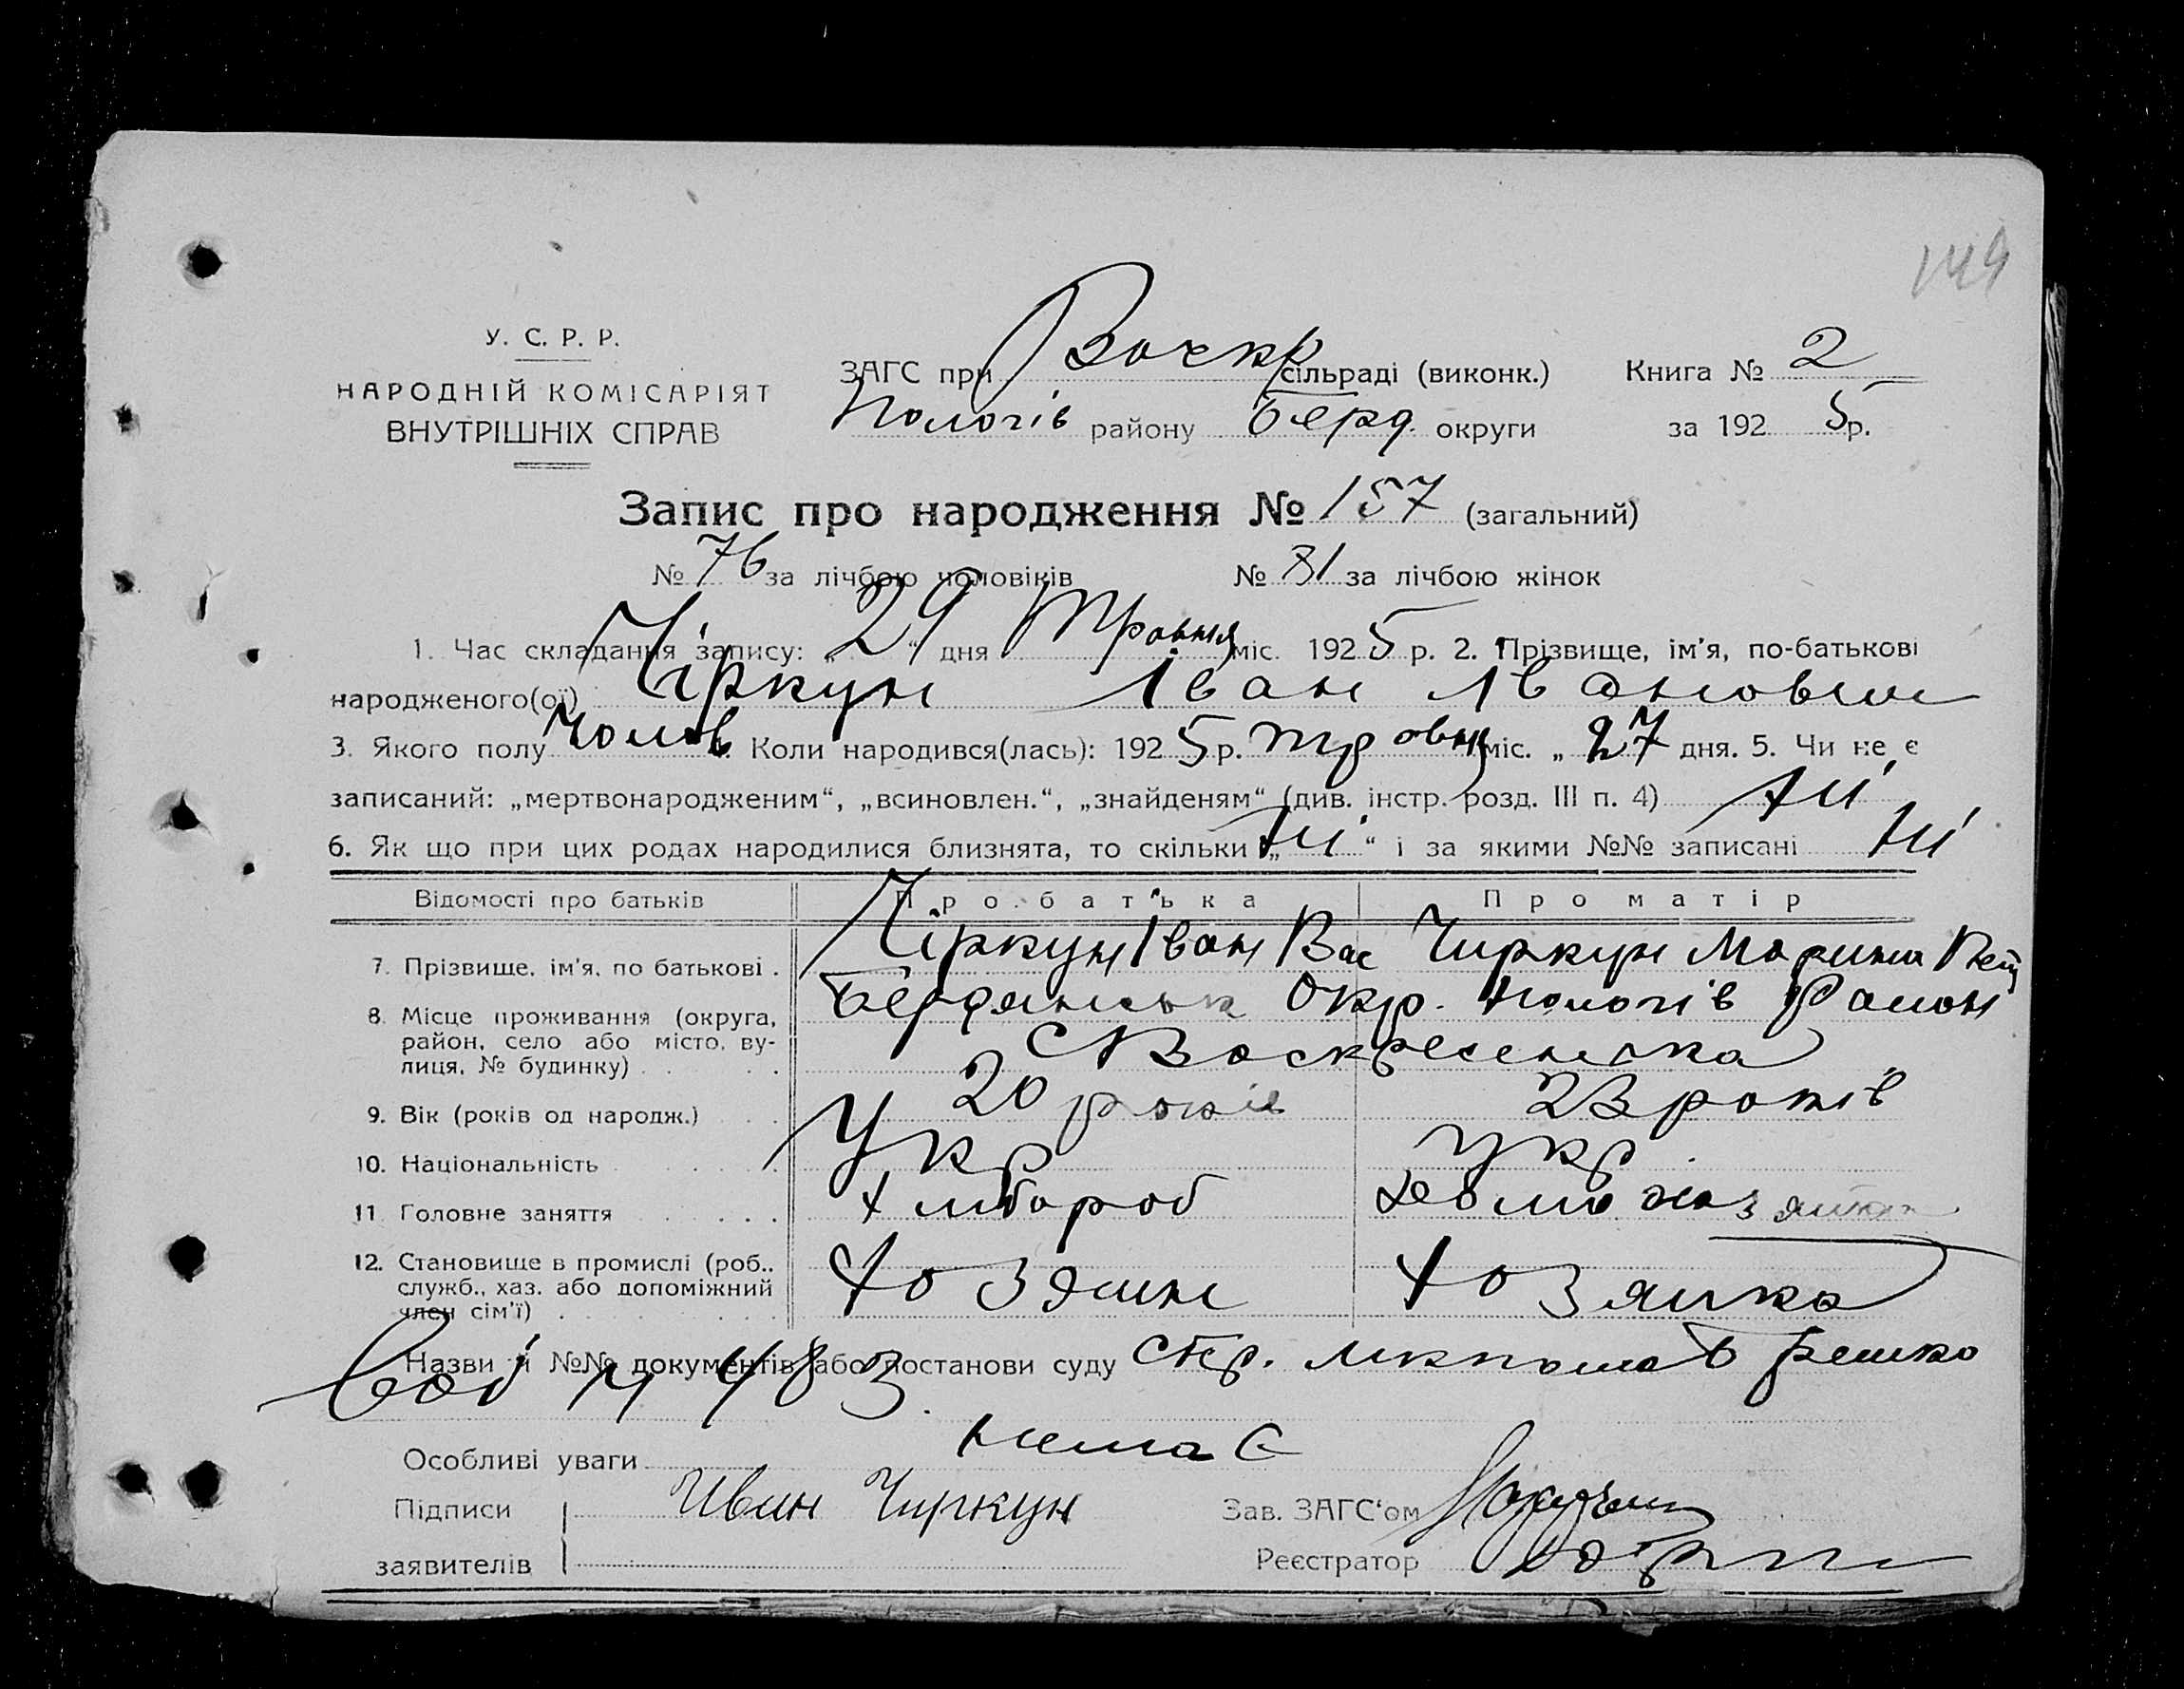 149
У. С. Р. Р.
НАРОДНІЙ КОМІСАРІЯТ
ВНУТРІШНІХ СПРАВ
ЗАГС при Воскр сільраді (виконк.) Книга № 2
Пологів району Берд. округи за 1925 р.
Запис про народження № 157 (загальний)
№ 76 за лічбою чоловіків № 81 за лічбою жінок
1. Час складання запису: „29“ дня Травня міс. 1925 р. 2. Прізвище, ім'я, по-батькові
народженого(ої) Чіркун Іван Іванович
3. Якого полу чолов. Коли народився(лась): 1925 р. травня міс. „27 дня. 5. Чи не є
записаний: „мертвонародженим“, „всиновлен.“, „знайденям“ (див. інстр. розд. III п. 4) ні
6. Як що при цих родах народилися близнята, то скільки „ні“ і за якими №№ записані ні
Відомості про батьків Про батька Про матір
7. Прізвище, ім'я, по батькові . Чіркун Іван Вас Чиркун Марина Пет
8. Місце проживання (округа, район, село або місто, ву-лиця, № будинку) . . . Бердянськ Окр. Пологів Район
с Воскресенка
9. Вік (років од народж.) . . 20 років 23 років
10. Національність . . . . . Укр укр.
11. Головне заняття . . . . . хлібороб домохаз
12. Становище в промислі (роб., служб., хаз. або допоміжний член сім'ї) . . . . . хозяин хозяйка
Назви й №№ документів або постанови суду
483
Особливі уваги нема є
Підписи Иван Чиркун Зав. ЗАГС'ом
заявителів Реєстратор